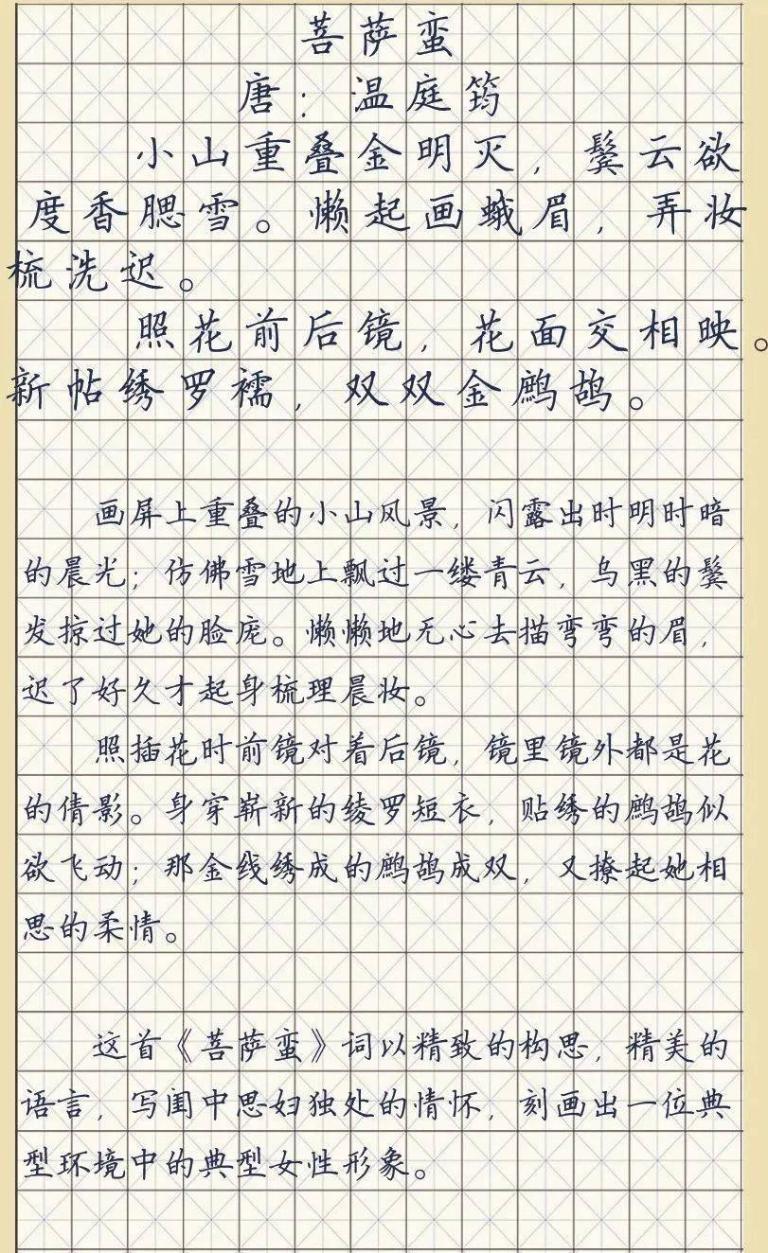 菩萨蛮
唐：温庭筠
小山重叠金明灭，鬓云欲
度香腮雪。懒起画蛾眉，弄妆
梳洗迟。
照花前后镜，花面交相映。
新帖绣罗襦，双双金鹧鸪。
画屏上重叠的小山风景，闪露出时明时暗
的晨光；仿佛雪地上飘过一缕青云，乌黑的鬓
发掠过她的脸庞。懒懒地无心去描弯弯的眉，
迟了好久才起身梳理晨妆。
照插花时前镜对着后镜，镜里镜外都是花
的倩影。身穿崭新的绫罗短衣，贴绣的鹧鸪似
欲飞动；那金线绣成的鹧鸪成双，又撩起她相
思的柔情。
这首《菩萨蛮》词以精致的构思，精美的
语言，写闺中思妇独处的情怀，刻画出一位典
型环境中的典型女性形象。